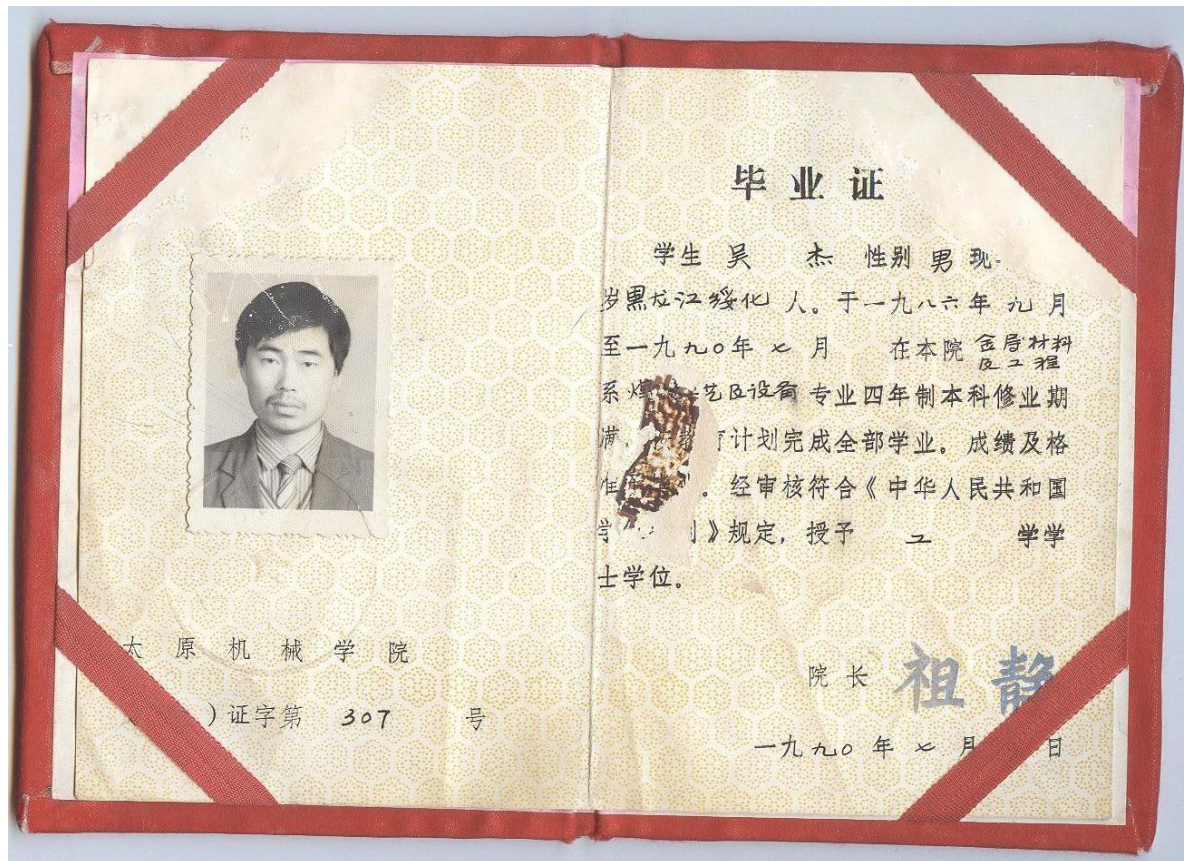 太原机械学院
）证字第 307 号
毕业证
学生 吴 杰 性别 男 现
岁黑龙江绥化 人。于一九八六年 九 月
至一九九〇年 七 月 在本院 金属材料
及工程
系焊 艺及设备 专业四年制本科修业期
满， 育计划完成全部学业。成绩及格
准 。经审核符合《中华人民共和国
学 》规定，授予 工 学学
士学位。
院长 祖静
一九九〇年 七 月 日